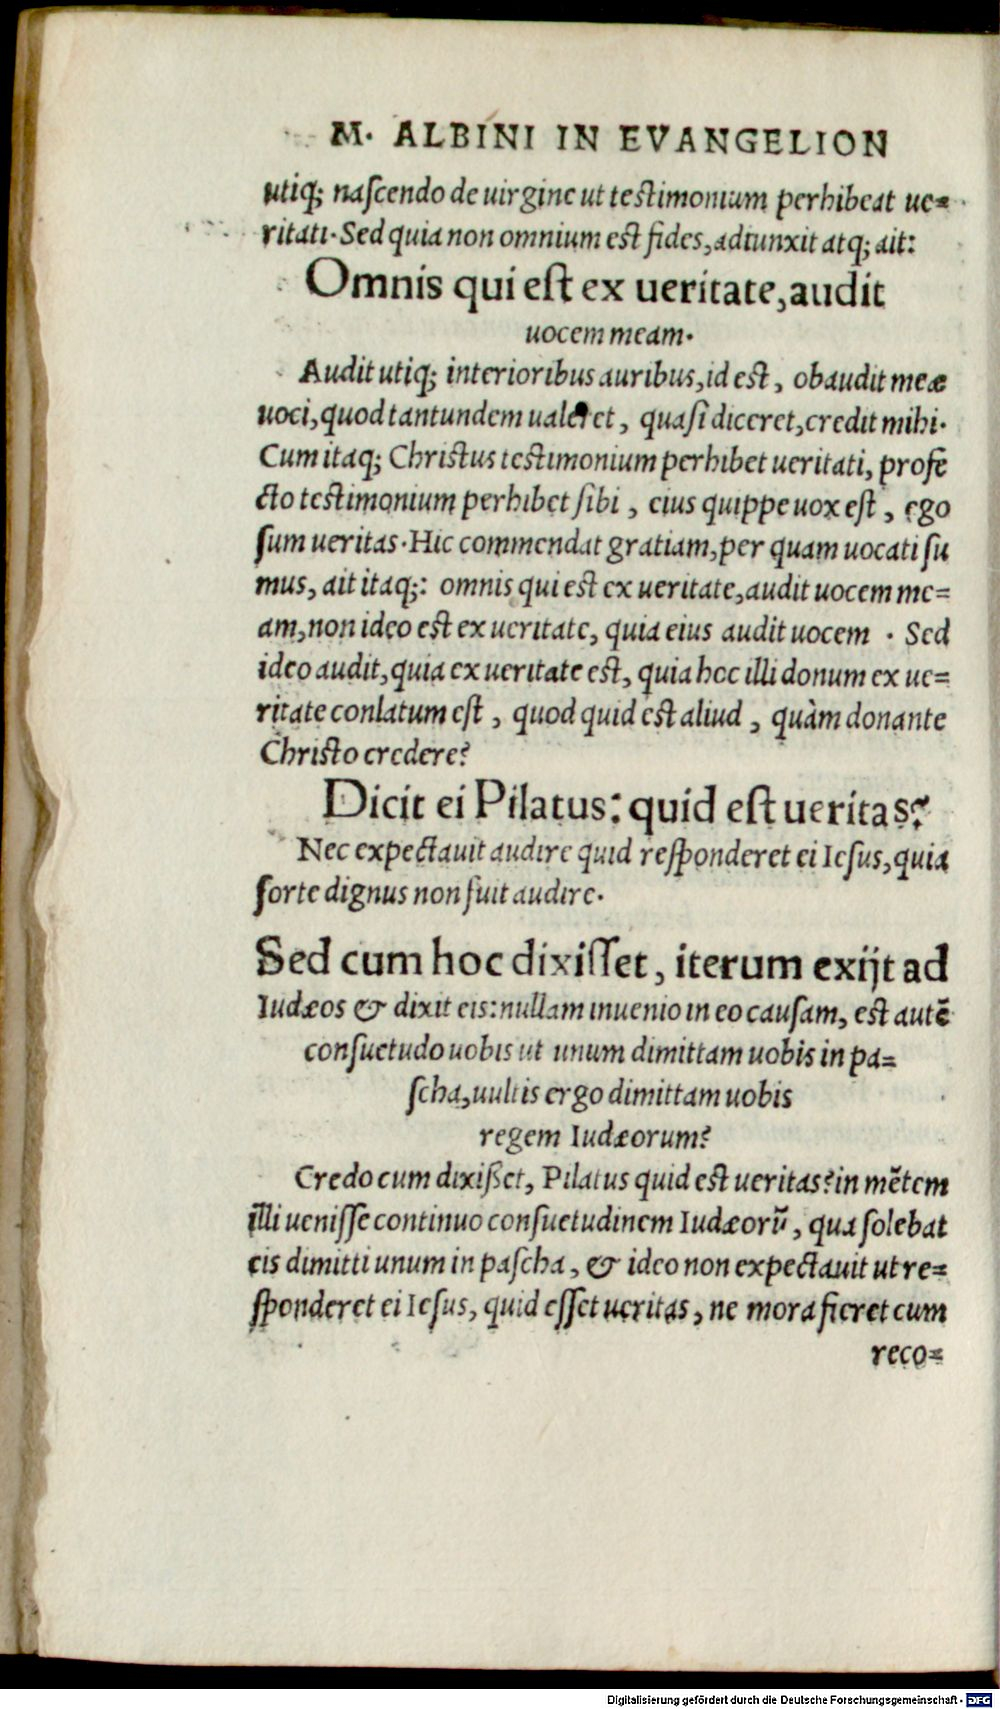 M. ALBINI IN EVANGELION
utiq; naſcendo de uirgine ut teſtimonium perhibeat ue=
ritati. Sed quia non omnium eſt fides, adiunxit atq; ait:
Omnis qui eſt ex ueritate, audit
uocem meam.
Audit utiq; interioribus auribus, id eſt, obaudit meæ
uoci, quod tantundem ualeret, quaſi diceret, credit mihi.
Cum itaq; Chriſtus teſtimonium perhibet ueritati, profe
cto teſtimonium perhibet ſibi, eius quippe uox eſt, ego
ſum ueritas. Hic commendat gratiam, per quam uocati ſu
mus, ait itaq;: omnis qui eſt ex ueritate, audit uocem me=
am, non ideo eſt ex ueritate, quia eius audit uocem . Sed
ideo audit, quia ex ueritate eſt, quia hoc illi donum ex ue=
ritate conlatum eſt, quod quid eſt aliud, quàm donante
Chriſto credere?
Dicit ei Pilatus: quid eſt ueritas?
Nec expectauit audire quid reſponderet ei Ieſus, quia
forte dignus non fuit audire.
Sed cum hoc dixiſſet, iterum exijt ad
Iudæos & dixit eis: nullam inuenio in eo cauſam, eſt autē
conſuetudo uobis ut unum dimittam uobis in pa=
ſcha, uultis ergo dimittam uobis
regem Iudæorum?
Credo cum dixißet, Pilatus quid eſt ueritas? in mētem
illi ueniſſe continuo conſuetudinem Iudæorū, qua ſolebat
eis dimitti unum in paſcha, & ideo non expectauit ut re=
ſponderet ei Ieſus, quid eſſet ueritas, ne mora fieret cum
reco=
Digitalisierung gefördert durch die Deutsche Forschungsgemeinschaft - DFG